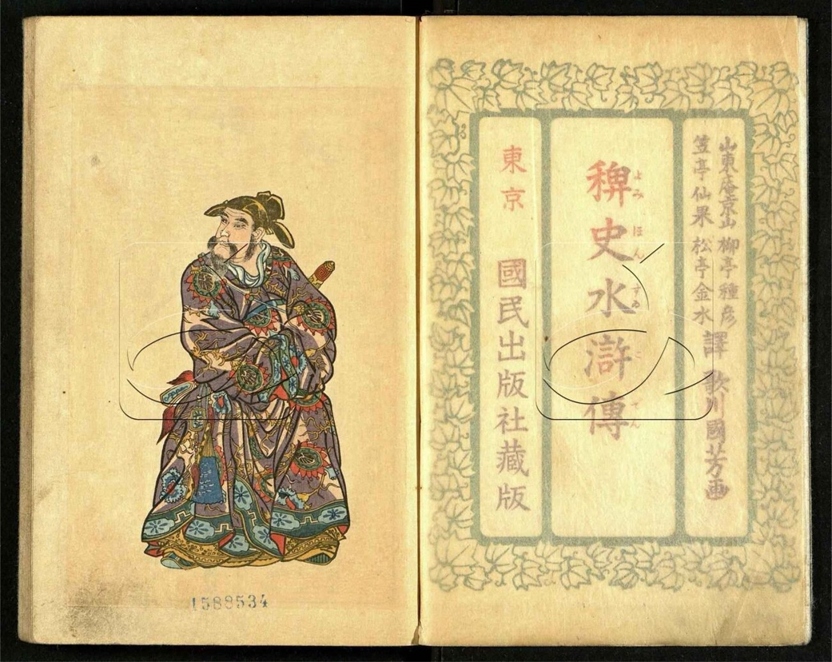 山東庵京山 柳亭種彦
笠亭仙果 松亭金水
譯 歌川國芳画
稗史水滸傳
よみ ほん すゐ こ でん
東京 國民出版社藏版
1588534